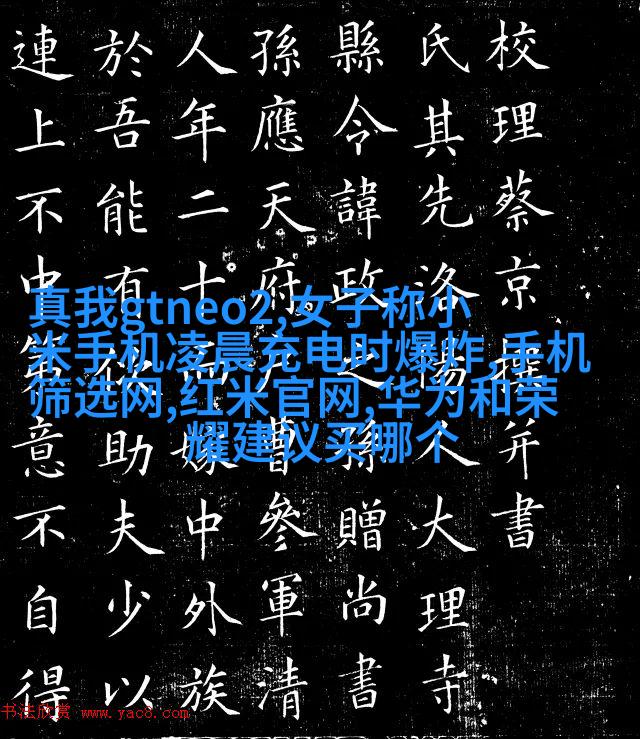 校理蔡京撰并書
氏其先洛陽人大理寺
縣令諱政之孫贈尚書
孫應天府戶曹參軍清
人年二十而嫁中外族
於吾能有助夫少以
連上不中第意不自得
真我gtneo2,女子称小
米手机凌晨充电时爆炸,手机
筛选网,红米官网,华为和荣
耀建议买哪个
书法欣赏 www.yac8.com